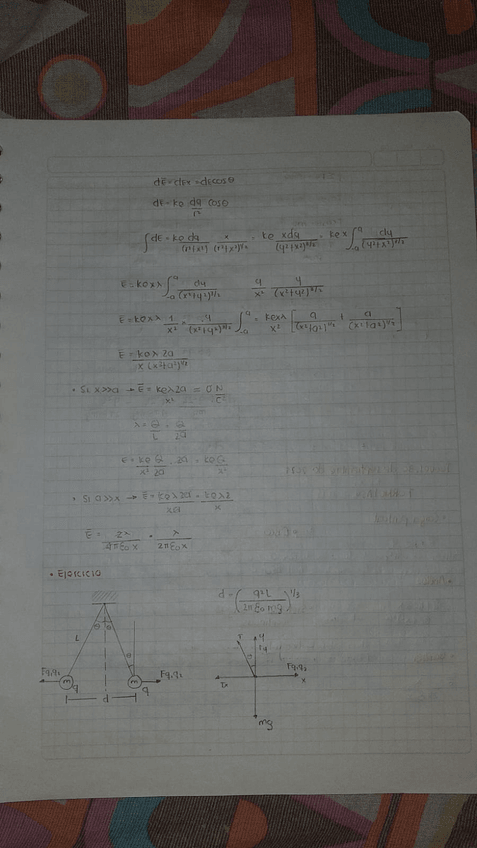 dE = dEx = dEcosθ
dE = ke dq/r² cosθ
∫dE = ke dq/(r²+x²) x/(r²+x²)^1/2 = ke xdq/(y²+x²)^3/2 = ke x ∫_-a^a dq/(y²+x²)^3/2
E = ke x λ ∫_-a^a dy/(x²+y²)^3/2 y/x² y/(x²+y²)^3/2
E = ke x λ 1/x² · y/(x²+y²)^3/2 ∫_-a^a = ke x λ/x² [a/(x²+a²)^1/2 + a/(x²+(a)²)^1/2]
E = keλ2a/x(x²+a²)^1/2
• Si x>>a → E = keλ2a/x² = 0 N/C
λ = Q/L = Q/2a
E = ke Q/x² 2a · 2a = ke Q/x²
• Si a>>x → E = keλ2a/xa = keλ2/x
E = 2λ/4πε₀x = λ/2πε₀x
• Ejercicio
d = (q²L/2πε₀mg)^1/3
L θ θ
θ
Fq₁q₂ m q m q Fq₁q₂
d
T y
Ty
θ
Fq₁q₂
x
mg